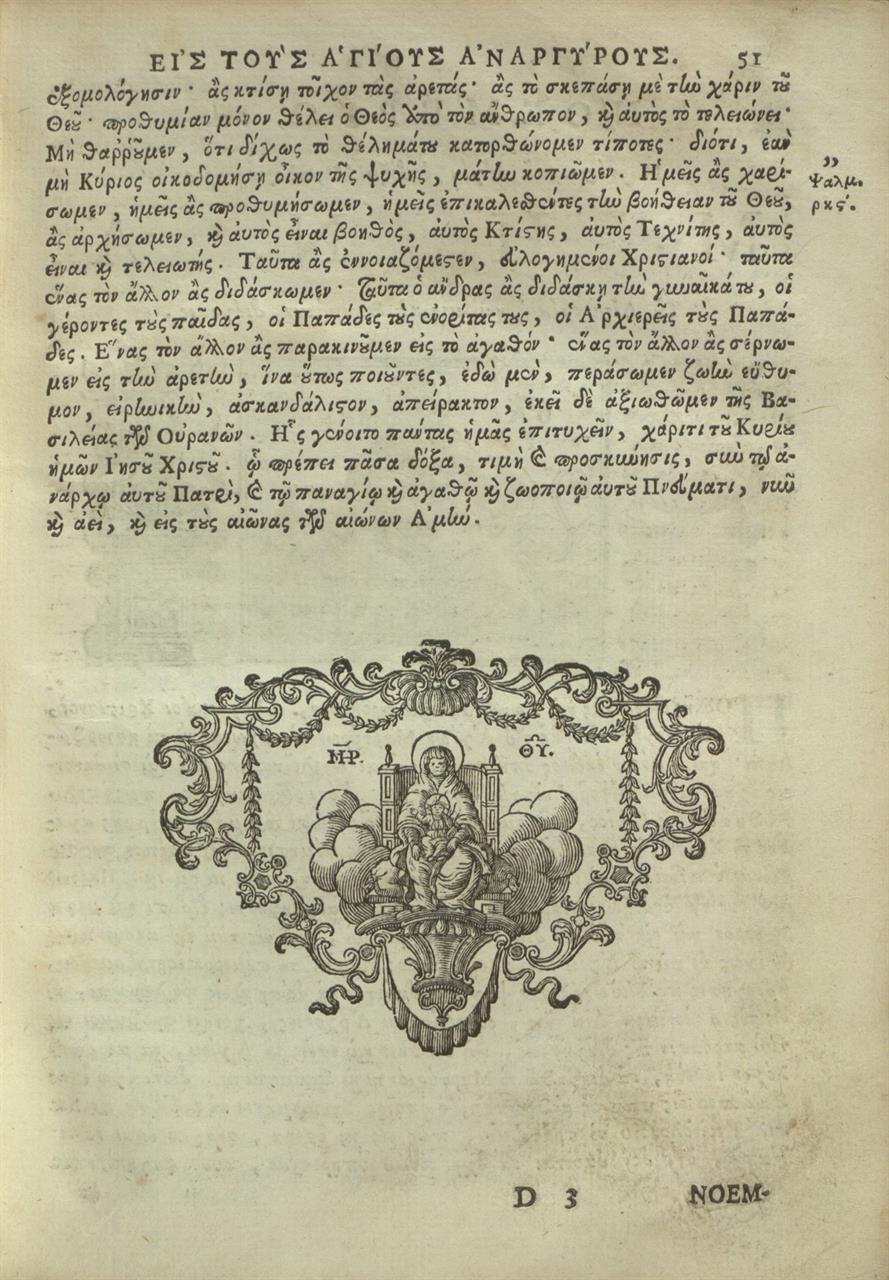 ΕΙ'Σ ΤΟΥ'Σ Α'ΓΙ'ΟΥΣ Α'ΝΑΡΓΥ'ΡΟΥΣ. 51
ἐξομολόγησιν· ἂς κτίσῃ τοῖχον τὰς ἀρετάς· ἂς τὸ σκεπάσῃ μὲ τὴν χάριν τοῦ
Θεοῦ· προθυμίαν μόνον θέλει ὁ Θεὸς ἀπὸ τὸν ἄνθρωπον, καὶ αὐτὸς τὸ τελειώνει·
Μὴ θαῤῥοῦμεν, ὅτι δίχως τὸ θέλημάτου κατορθώνομεν τίποτες· διότι, ἐὰν
μὴ Κύριος οἰκοδομήσῃ οἶκον τῆς ψυχῆς, μάτην κοπιῶμεν. Ἡμεῖς ἂς χαρί-
σωμεν, ἡμεῖς ἂς προθυμήσωμεν, ἡμεῖς ἐπικαλεθέντες τὴν βοήθειαν τοῦ Θεοῦ,
ἂς ἀρχήσωμεν, καὶ αὐτὸς εἶναι βοηθὸς, αὐτὸς Κτίστης, αὐτὸς Τεχνίτης, αὐτὸς
εἶναι καὶ τελειωτής. Ταῦτα ἂς ἐννοιαζόμεστεν, εὐλογημένοι Χριστιανοί· ταῦτα
ἕνας τὸν ἄλλον ἂς διδάσκωμεν· Ταῦτα ὁ ἄνδρας ἂς διδάσκῃ τὴν γυναῖκάτου, οἱ
γέροντες τοὺς παῖδας, οἱ Παπάδες τοὺς ἐνορίτας τους, οἱ Ἀρχιερεῖς τοὺς Παπά-
δες. Ἕνας τὸν ἄλλον ἂς παρακινοῦμεν εἰς τὸ ἀγαθόν· ἕνας τὸν ἄλλον ἂς σέρνω-
μεν εἰς τὴν ἀρετὴν, ἵνα οὕτως ποιοῦντες, ἐδὼ μὲν, περάσωμεν ζωὴν εὔθυ-
μον, εἰρηνικὴν, ἀσκανδάλιστον, ἀπείρακτον, ἐκεῖ δὲ ἀξιωθῶμεν τῆς Βα-
σιλείας τῶν Οὐρανῶν. Ἧς γένοιτο πάντας ἡμᾶς ἐπιτυχεῖν, χάριτι τοῦ Κυρίου
ἡμῶν Ἰησοῦ Χριστοῦ. ᾧ πρέπει πᾶσα δόξα, τιμὴ καὶ προσκύνησις, σὺν τῷ ἀ-
νάρχῳ αὐτοῦ Πατρὶ, καὶ τῷ παναγίῳ καὶ ἀγαθῷ καὶ ζωοποιῷ αὐτοῦ Πνεύματι, νῦν
καὶ ἀεὶ, καὶ εἰς τοὺς αἰῶνας τῶν αἰώνων Ἀμήν.
,,
Ψαλμ.
ρκς΄.
ΜΡ. ΘΥ.
D 3 ΝΟΕΜ-